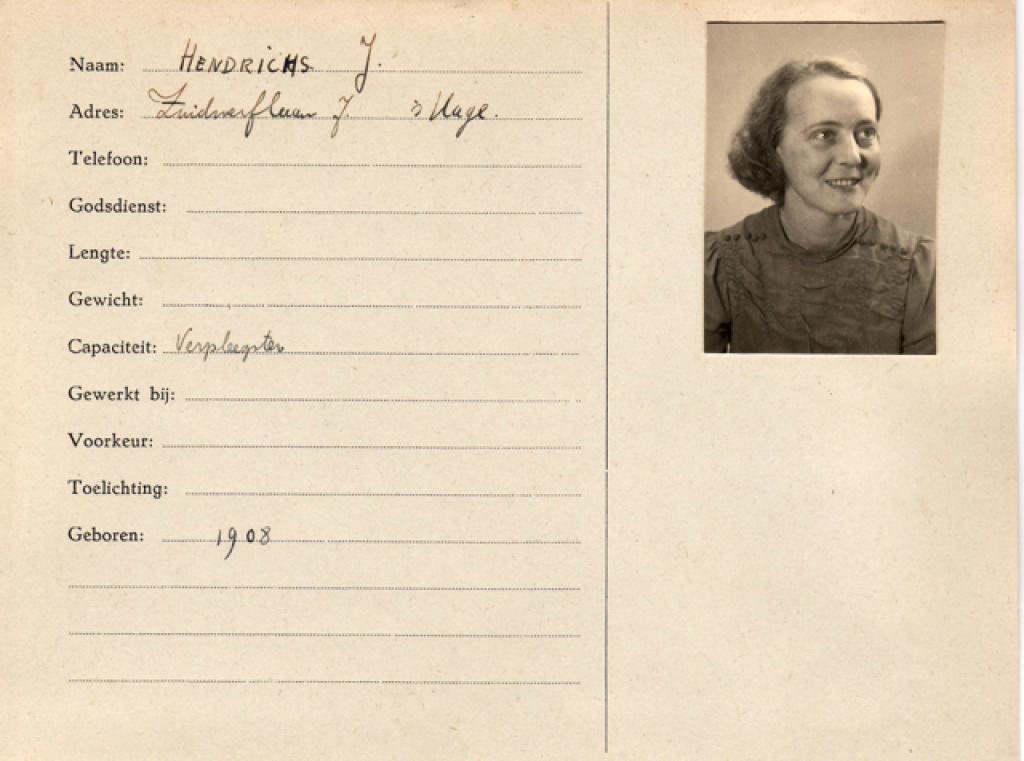 Naam: HENDRICHS J.
Adres: Zuidwerflaan 's Hage.
Telefoon:
Godsdienst:
Lengte:
Gewicht:
Capaciteit: Verpleegster
Gewerkt bij:
Voorkeur:
Toelichting:
Geboren: 1908